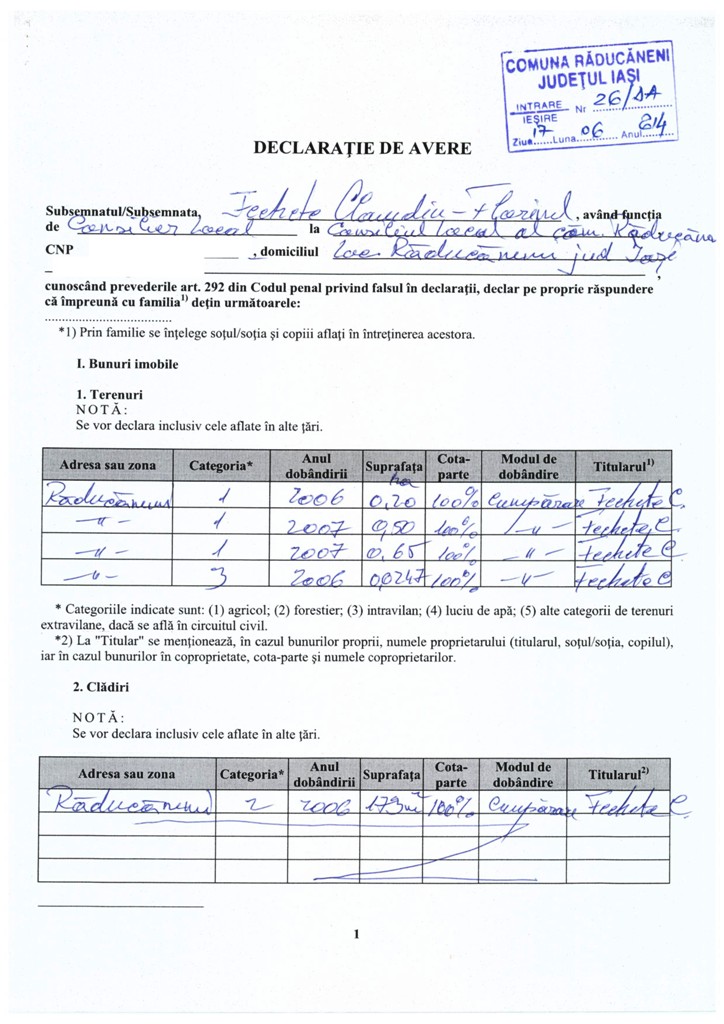 COMUNA RĂDUCĂNENI
JUDEȚUL IAȘI
INTRARE
IEȘIRE Nr 26/DA
Ziua 17 Luna 06 Anul
DECLARAŢIE DE AVERE
Subsemnatul/Subsemnata, Fechete Claudiu-Florinel, având funcţia
de Consilier Local la Consiliul Local al com. Răducăneni
CNP , domiciliul Loc Răducăneni jud Iași
,
cunoscând prevederile art. 292 din Codul penal privind falsul în declaraţii, declar pe proprie răspundere
că împreună cu familia1) deţin următoarele:
*1) Prin familie se înţelege soţul/soţia şi copiii aflaţi în întreţinerea acestora.
I. Bunuri imobile
1. Terenuri
NOTĂ:
Se vor declara inclusiv cele aflate în alte ţări.
Adresa sau zona Categoria* Anul dobândirii Suprafaţa Cota-parte Modul de dobândire Titularul1)
ha
Răducăneni 1 2006 0,20 100% Cumpărare Fechete C.
-"- 1 2007 0,50 100% -"- Fechete C
-"- 1 2007 0,65 100% -"- Fechete C
-"- 3 2006 0,0247 100% -"- Fechete C
* Categoriile indicate sunt: (1) agricol; (2) forestier; (3) intravilan; (4) luciu de apă; (5) alte categorii de terenuri
extravilane, dacă se află în circuitul civil.
*2) La "Titular" se menţionează, în cazul bunurilor proprii, numele proprietarului (titularul, soţul/soţia, copilul),
iar în cazul bunurilor în coproprietate, cota-parte şi numele coproprietarilor.
2. Clădiri
NOTĂ:
Se vor declara inclusiv cele aflate în alte ţări.
Adresa sau zona Categoria* Anul dobândirii Suprafaţa Cota-parte Modul de dobândire Titularul2)
Răducăneni 2 2006 100% Cumpărare Fechete C.
1